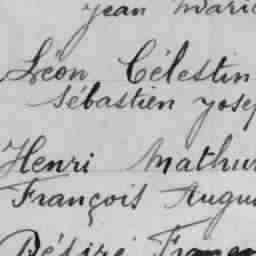 Jean Marie
Léon Célestin
Sébastien Josep
Henri Mathur
François Augu
Désiré Franço